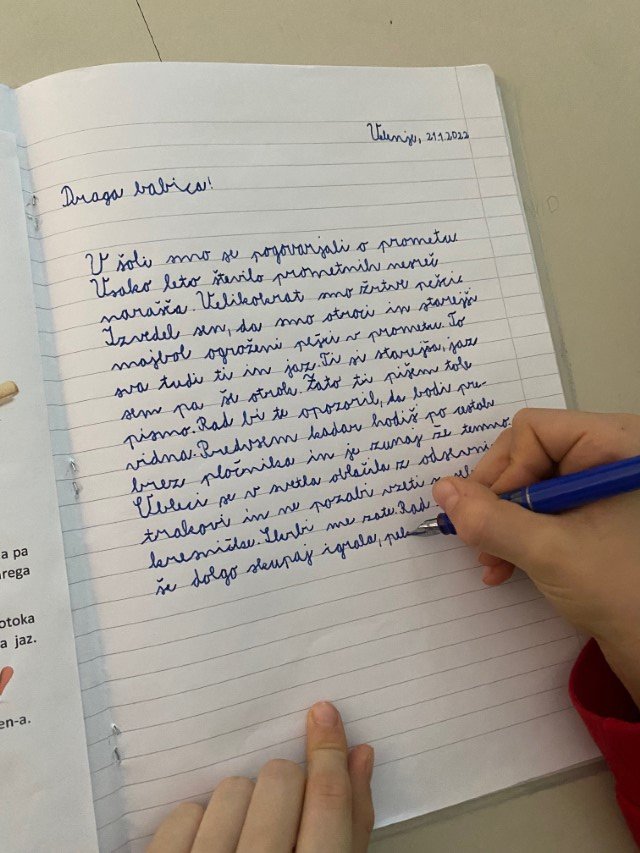 Velenje, 21.1.2022
Draga babica!
V šoli smo se pogovarjali o prometu
Vsako leto število prometnih nesreč
narašča. Velikokrat smo žrtve pešci
Izvedel sem, da smo otroci in starejši
najbol ogroženi pešci v prometu. To
sva tudi ti in jaz. Ti si starejša, jaz
sem pa še otrok. Zato ti pišem tole
pismo. Rad bi te opozoril, da bodi pre-
vidna. Predvsem kadar hodiš po cestah
brez pločnika in je zunaj že temno.
Obleci se v svetla oblačila z odsevnimi
trakovi in ne pozabi vzeti s
kresničke. Skrbi me zate. Rad
še dolgo skupaj igrala,
a pa
rega
otoka
a jaz.
en-a.